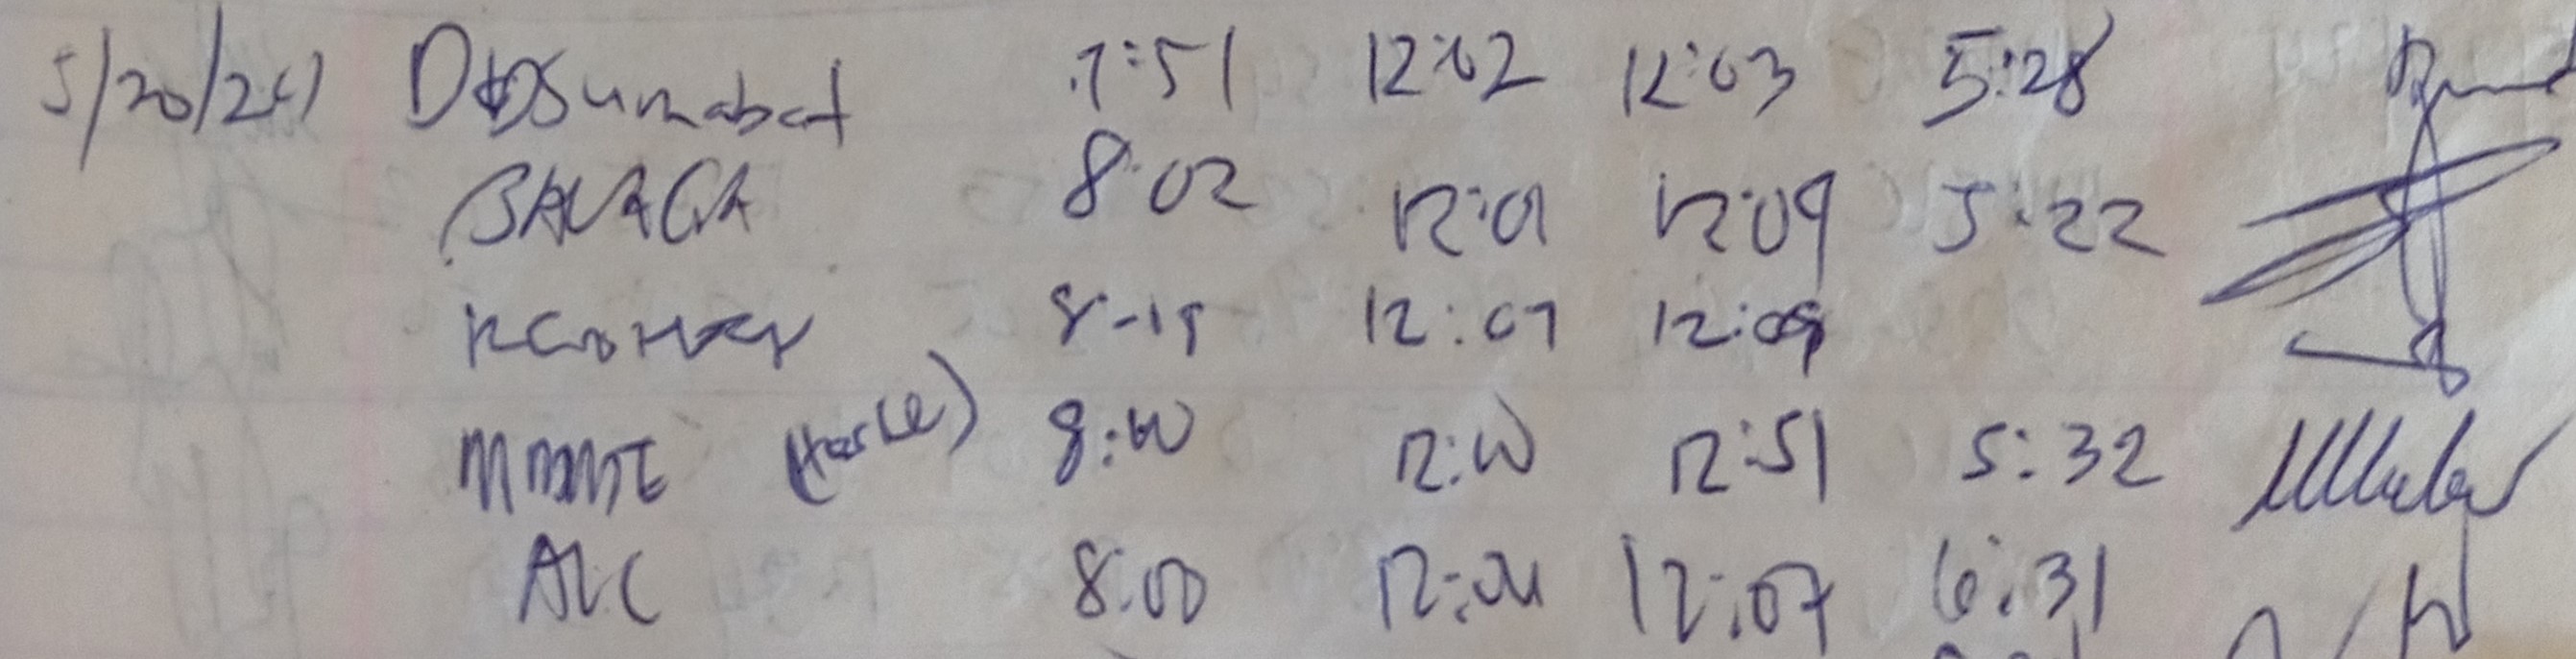 5/20/24 DDSumabat 7:51 12:02 12:03 5:28
BALAGA 8:02 12:01 12:09 5:22
8-15 12:07 12:09
8:00 12:00 12:51 5:32
ALC 8:00 12:04 12:07 6:31